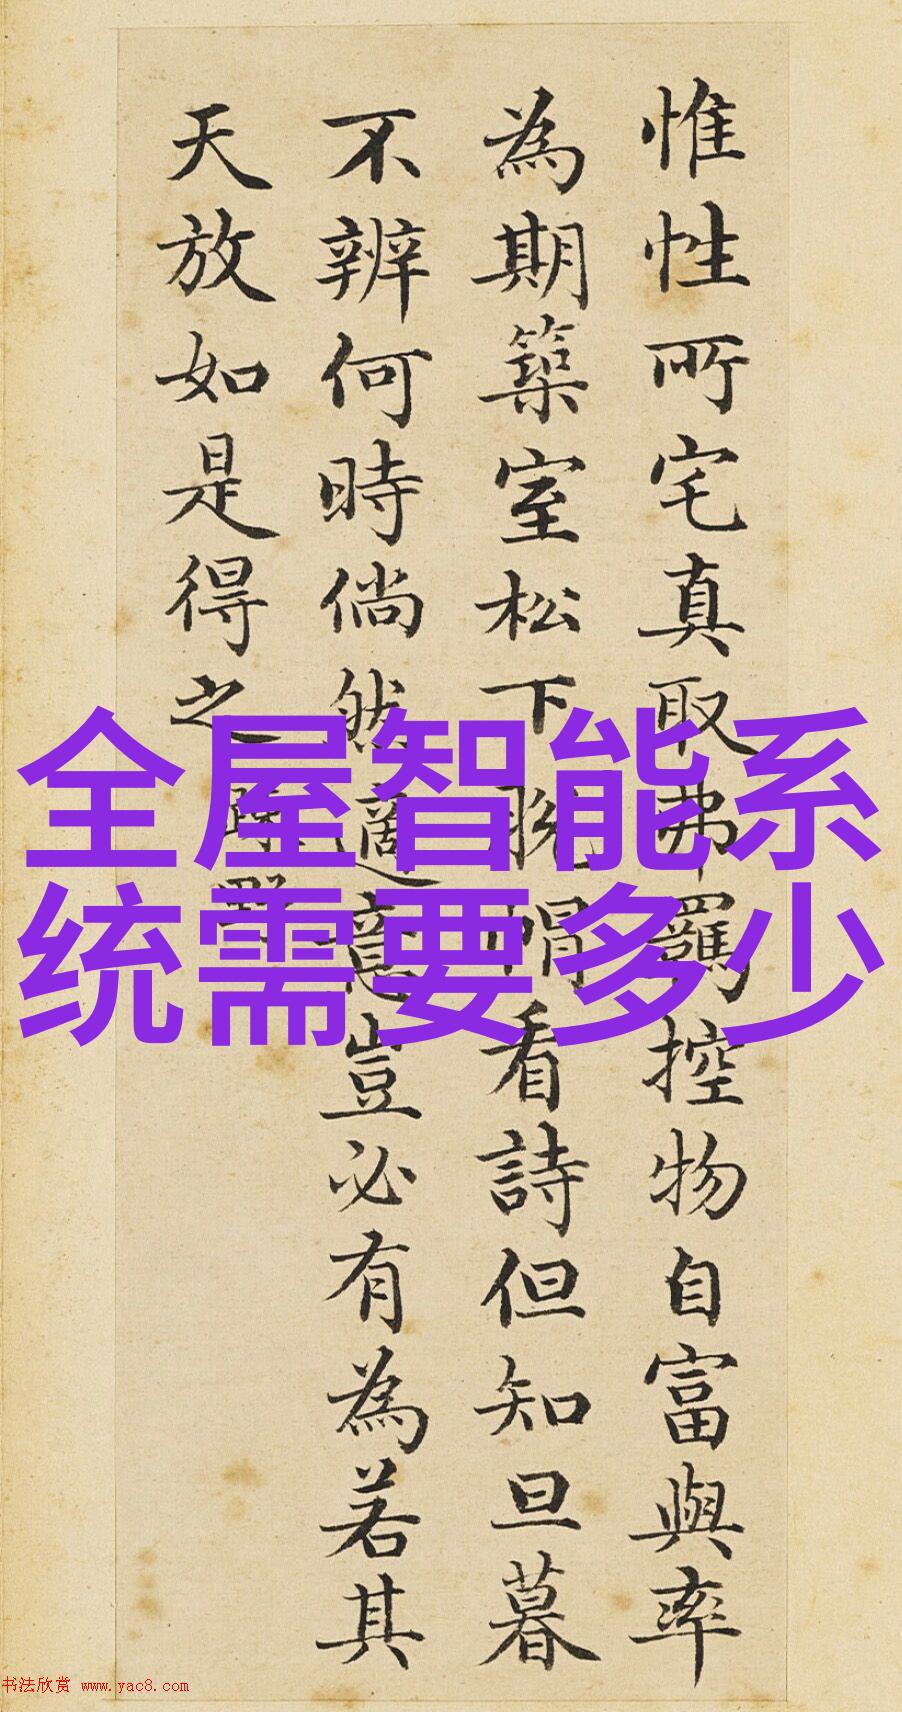 惟性所宅真取弗羈控物自富與率
為期築室松下脫帽看詩但知旦暮
不辨何時倘然適意豈必有為若其
天放如是得之
全屋智能系
统需要多少
书法欣赏 www.yac8.com